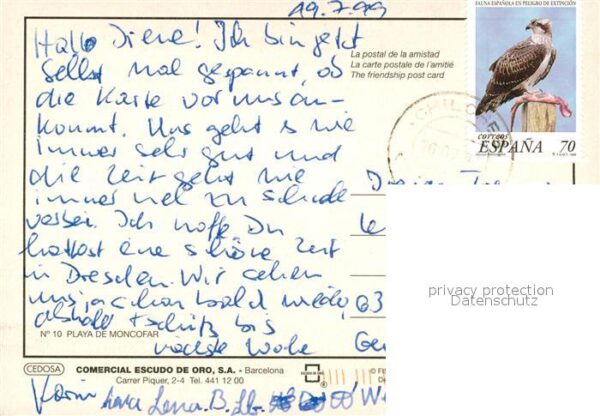 19.7.99
Hallo Diene! Ich bin jetzt
selbst mal gespannt, ob
die Karte vor uns an-
kommt. Uns geht's wie
immer sehr gut und
die Zeit geht wie
immer viel zu schnell
vorbei. Ich hoffe Du
hattest eine schöne Zeit
in Dresden. Wir sehen
uns ja schon bald wieder,
deshalb tschüß bis
nächste Woche
La postal de la amistad
La carte postale de l'amitié
The friendship post card
FAUNA ESPAÑOLA EN PELIGRO DE EXTINCIÓN
CORREOS
ESPAÑA 70
63
Ger
privacy protection
Datenschutz
Nº 10 PLAYA DE MONCOFAR
CEDOSA
COMERCIAL ESCUDO DE ORO, S.A. - Barcelona
Carrer Piquer, 2-4 Tel. 441 12 00
Karin
Lena. B.